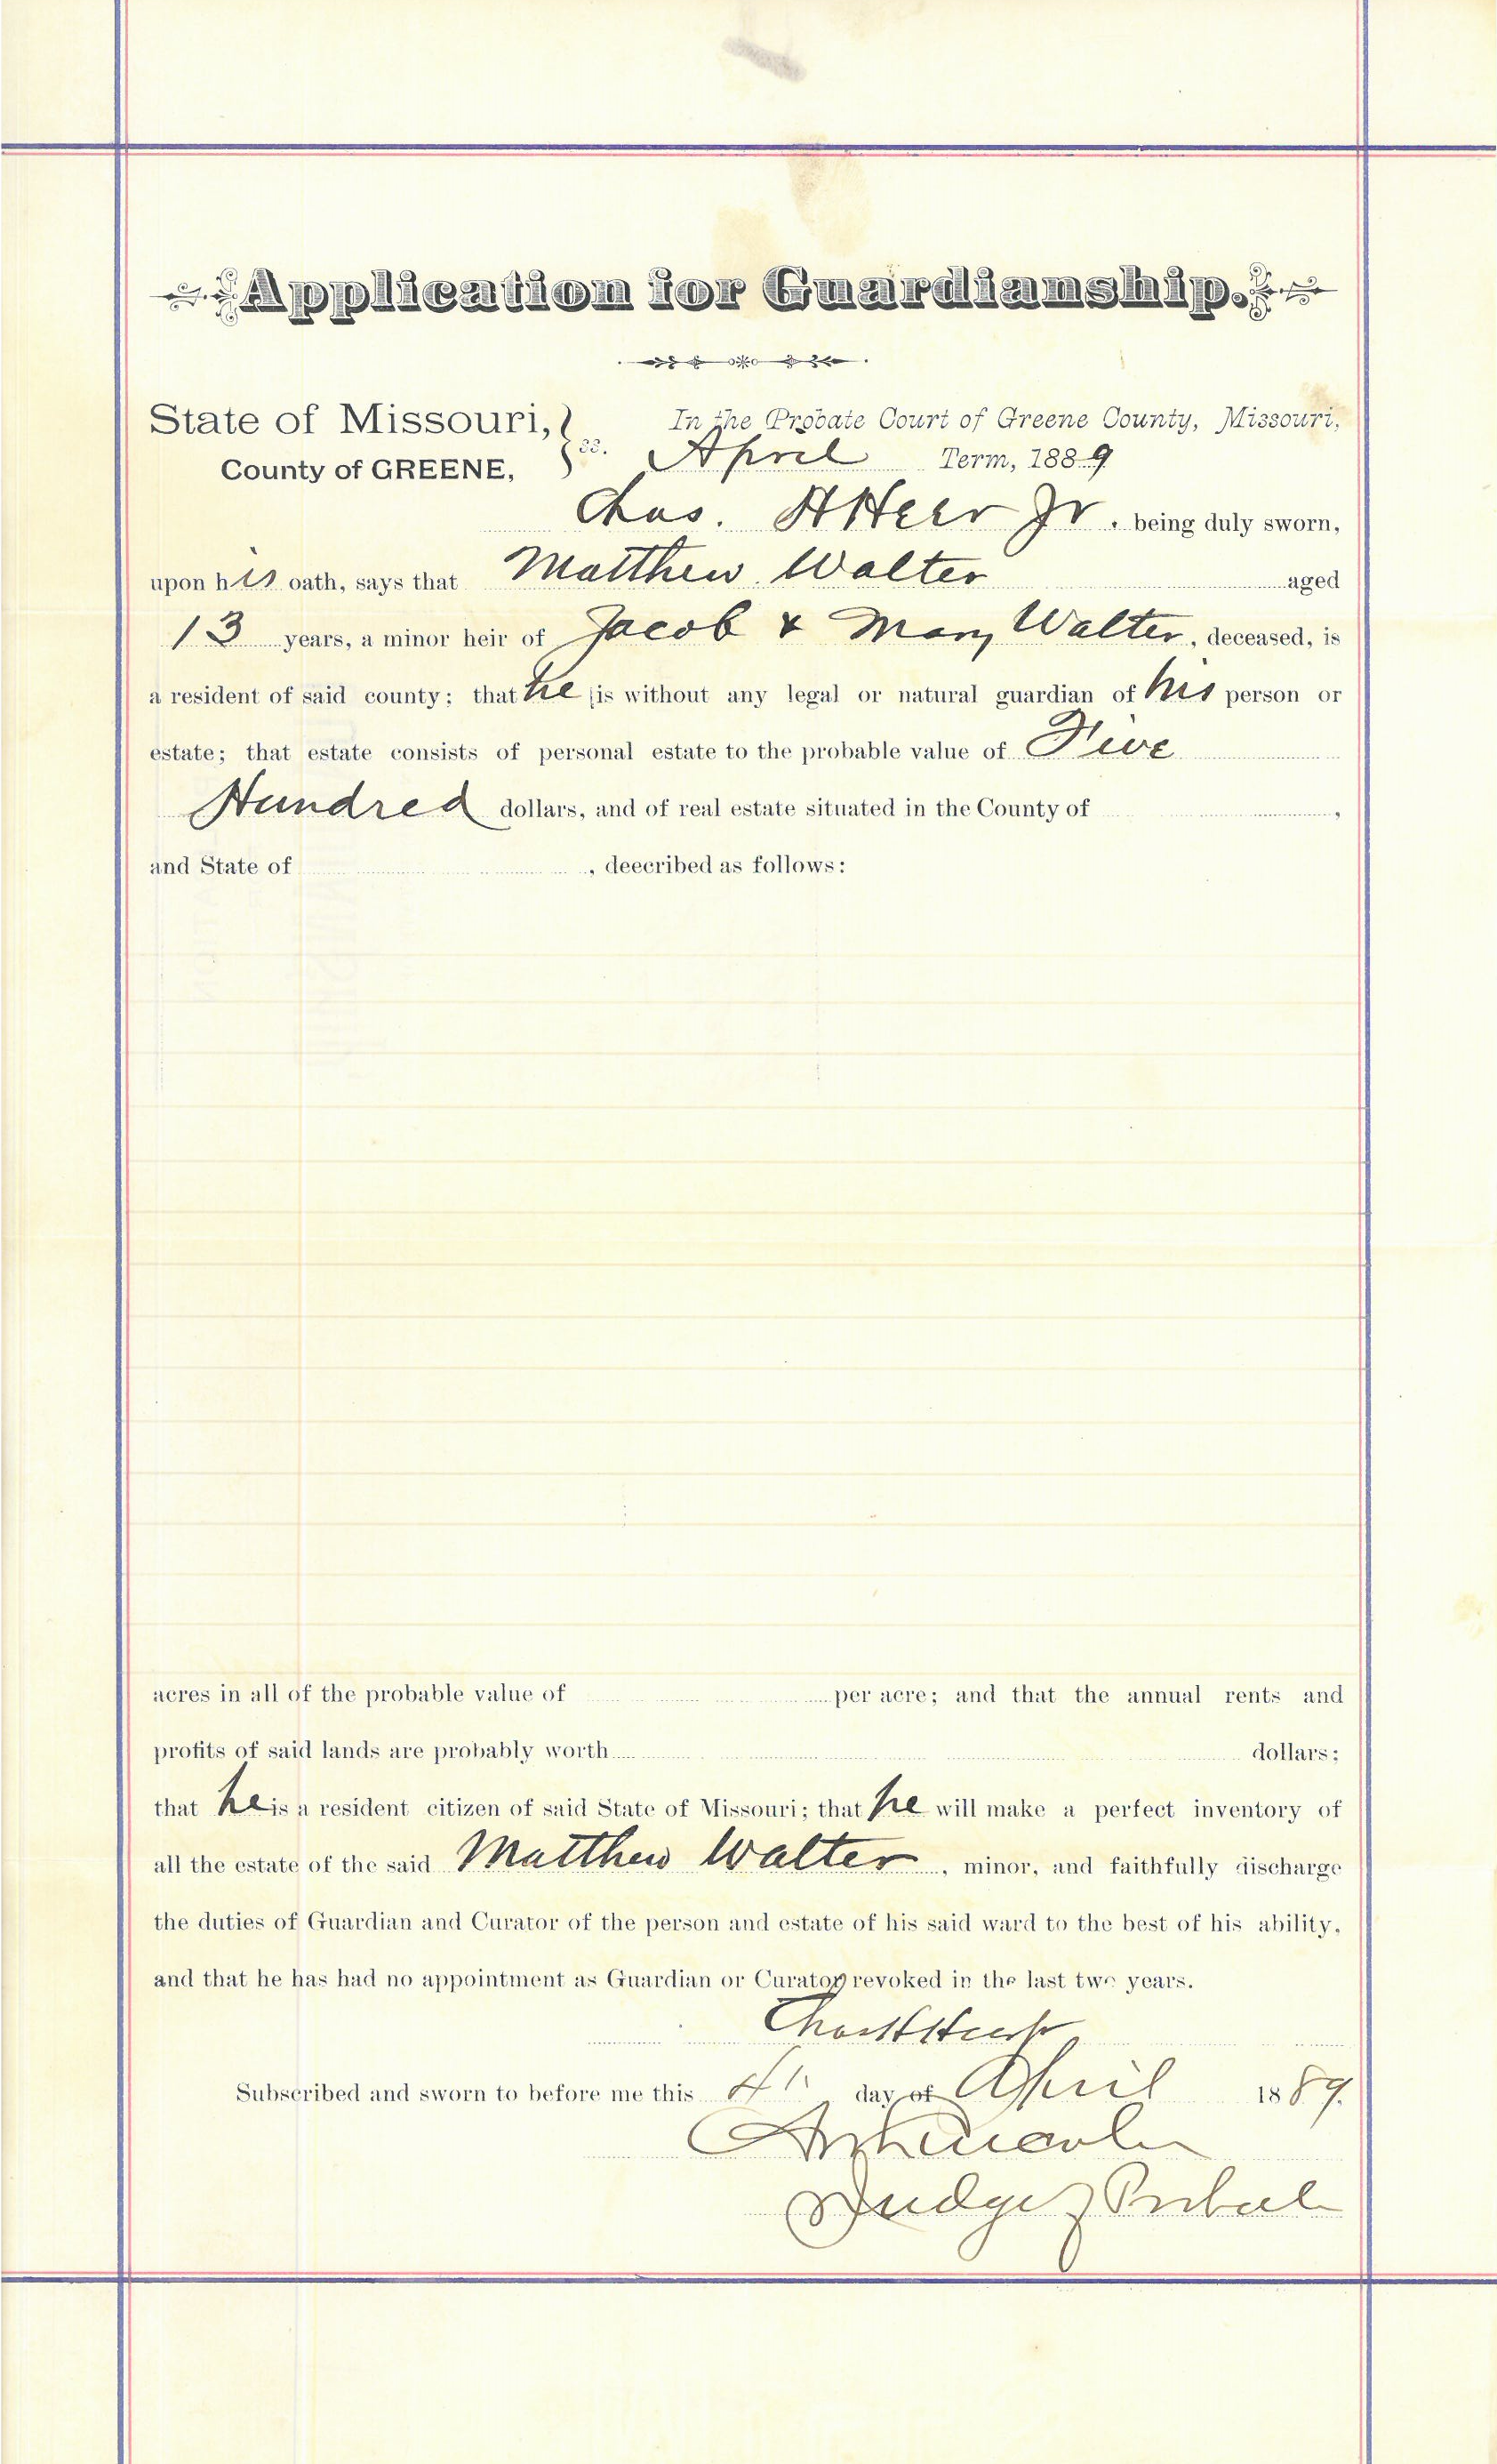 Application for Guardianship.
State of Missouri, } ss. In the Probate Court of Greene County, Missouri,
County of GREENE, April Term, 1889
Chas. H Heer Jr., being duly sworn,
upon his oath, says that Matthew Walter aged
13 years, a minor heir of Jacob & Mary Walter, deceased, is
a resident of said county; that he is without any legal or natural guardian of his person or
estate; that estate consists of personal estate to the probable value of Five
Hundred dollars, and of real estate situated in the County of ,
and State of , deecribed as follows:
acres in all of the probable value of per acre; and that the annual rents and
profits of said lands are probably worth dollars;
that he is a resident citizen of said State of Missouri; that he will make a perfect inventory of
all the estate of the said Matthew Walter, minor, and faithfully discharge
the duties of Guardian and Curator of the person and estate of his said ward to the best of his ability,
and that he has had no appointment as Guardian or Curator revoked in the last two years.
Chas H Heer Jr
Subscribed and sworn to before me this 4" day of April 1889.
Judge of Probate